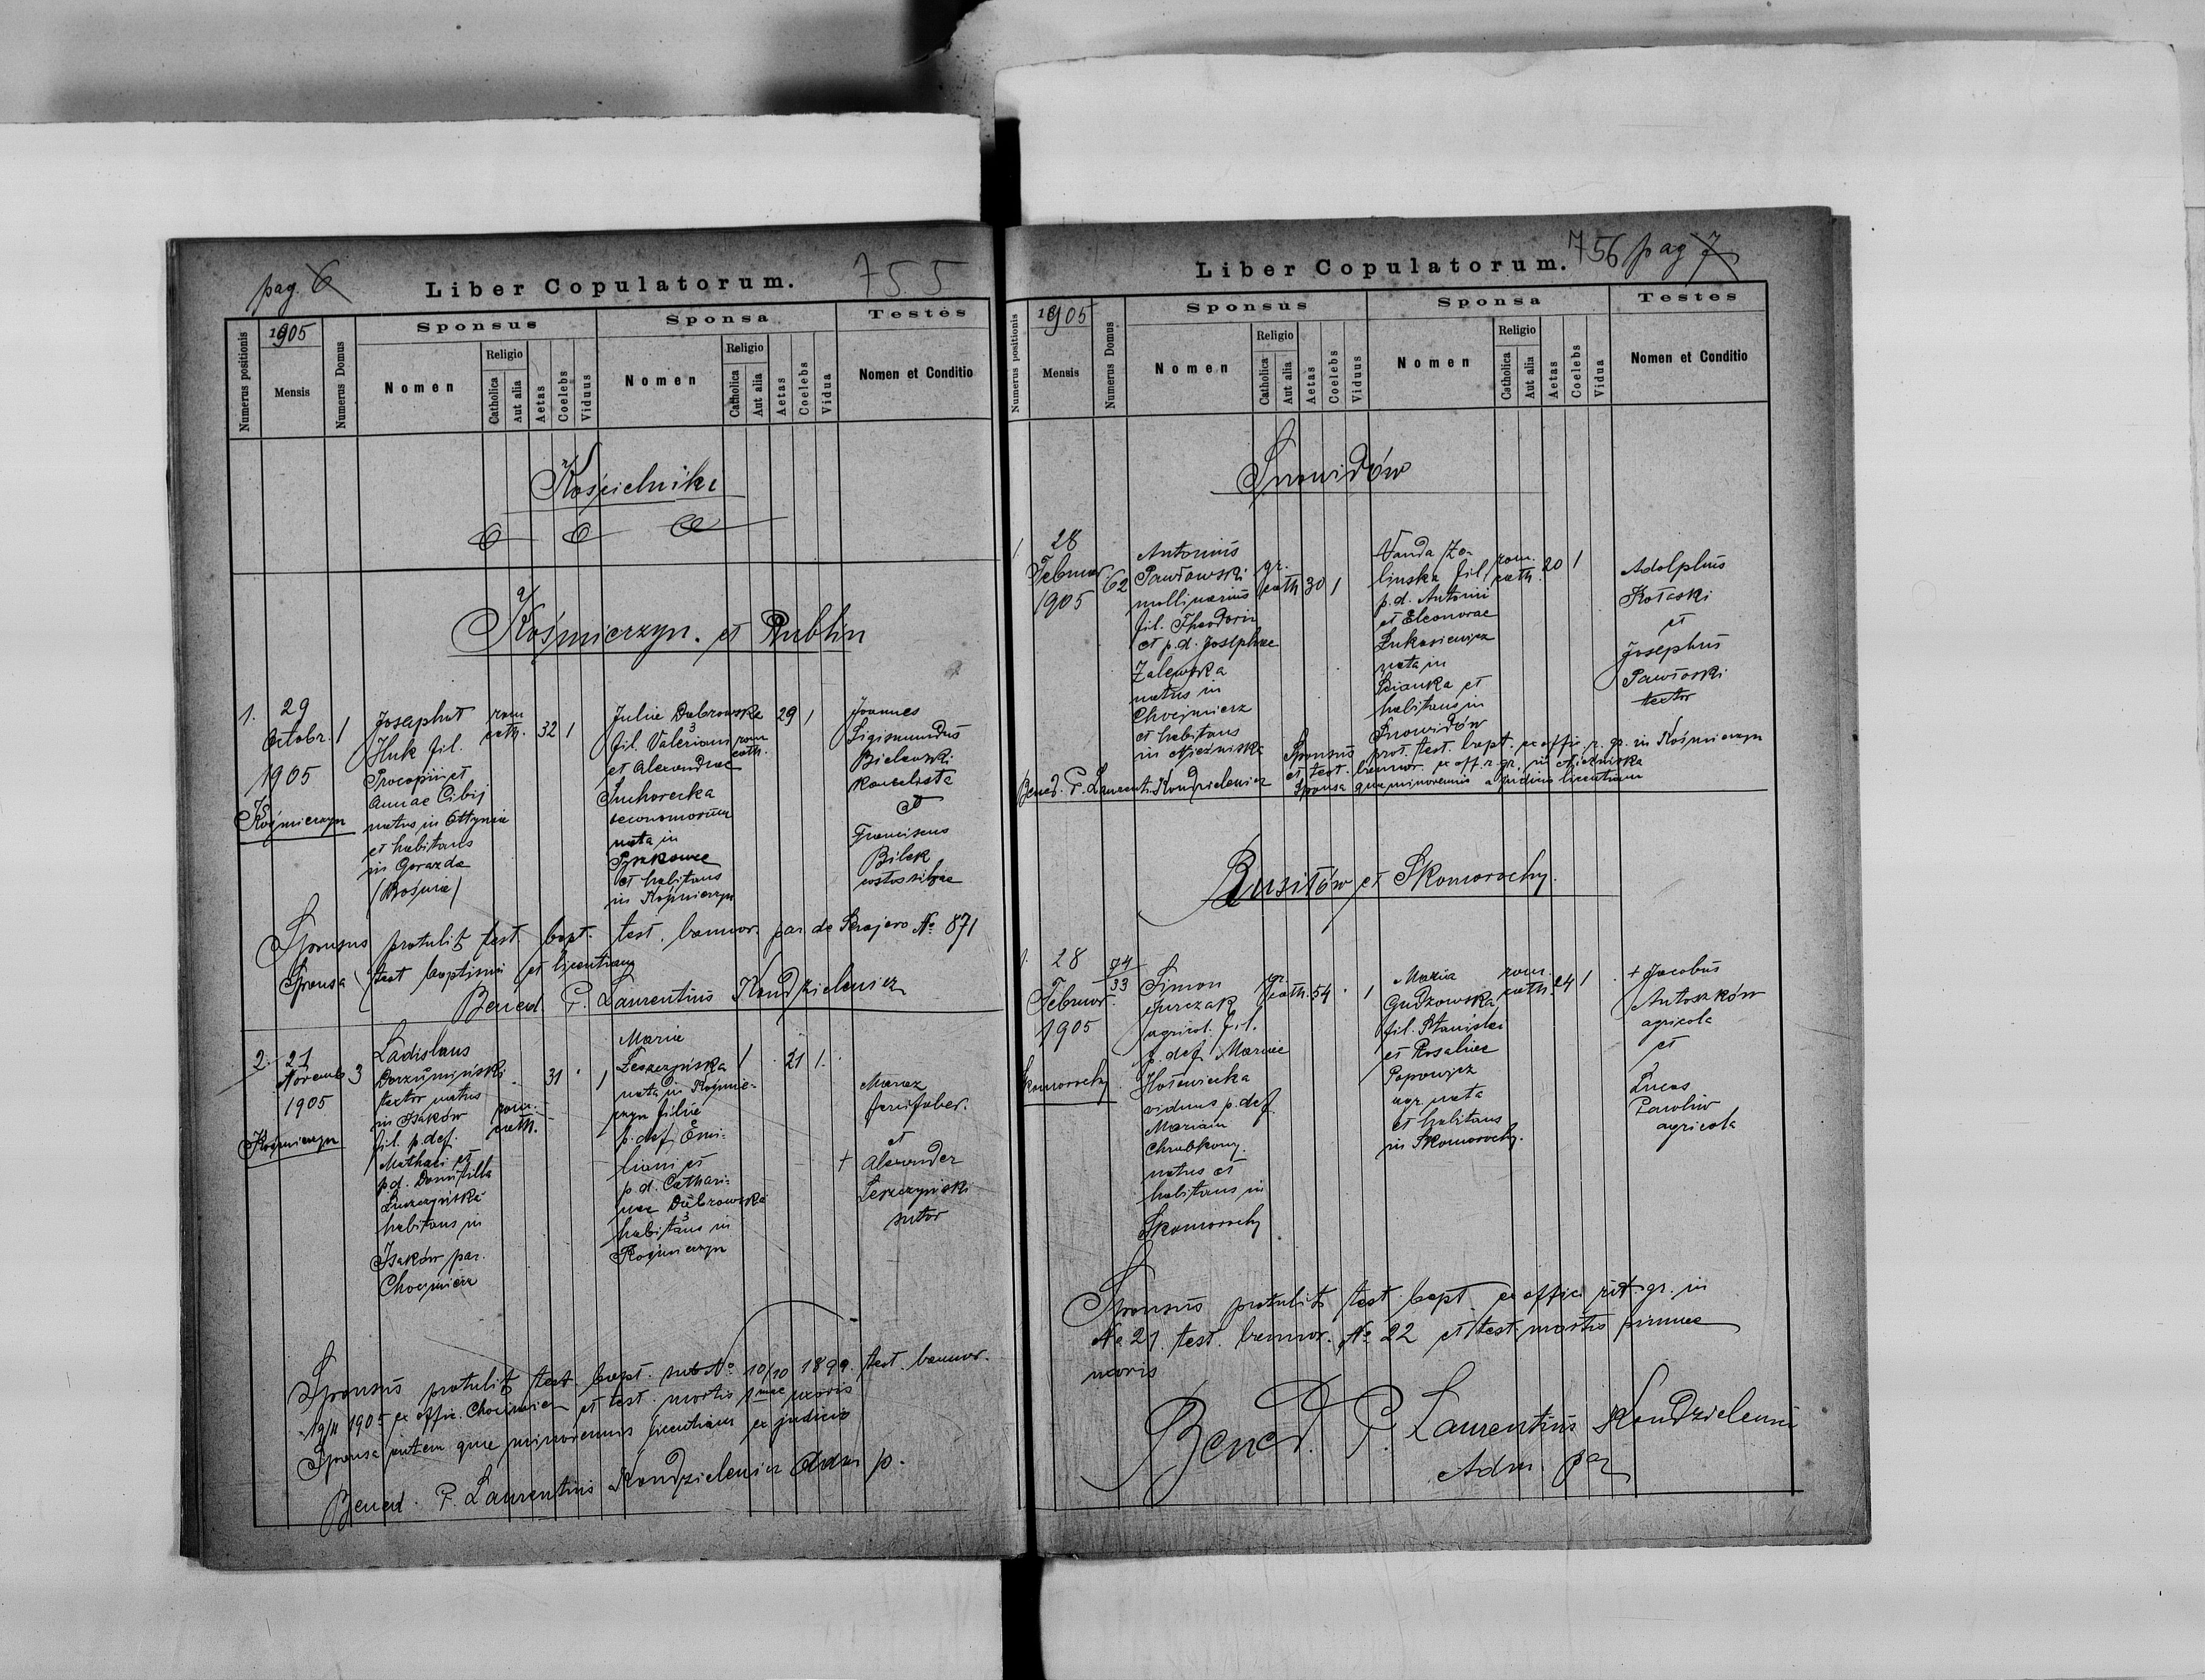 pag. 6
Liber Copulatorum.
755
Numerus positionis
1905
Mensis
Numerus Domus
Sponsus
Nomen
Religio
Catholica
Aut alia
Aetas
Coelebs
Viduus
Sponsa
Nomen
Religio
Catholica
Aut alia
Aetas
Coelebs
Vidua
Testes
Nomen et Conditio
Kościelniki
Kośmierzyn. et Dublin
1. 29
Octobr. 1
1905
Kośmierzyn
Josaphat
Huk fil.
Procopii et
Annae Cibij
natus in Ottynia
et habitans
in Gorazda
(Bosnia)
rom
cath. 32 1
Julia Dąbrowska
fil. Valeriani
et Alexandrae
Suchorecka
oeconomorum
nata in
Pyszkowce
et habitans
in Kośmierzyn
rom
cath.
29 1
Joannes
Sigismundus
Bielawski
kancelista
et
Franciscus
Bilek
custos silvae
Sponsus protulit test. bapt. test. bannor. par. de Serajevo No 871
Sponsa test baptismi et licentiam
Bened. P. Laurentius Kondzielewicz
2. 21
Novemb 3
1905
Kośmierzyn
Ladislaus
textor natus
in Isaków
fil. p. def.
Mathaei et
p.d. Domitilla
habitans in
Isaków par.
Chocimierz
rom.
cath.
31 1
Maria
Leszczyńska
nata in Kośmie-
rzyn filia
p. def. Emi-
liani et
p.d. Cathari-
nae Dąbrowska
habitans in
Kośmierzyn
1 21 1
et
+ Alexander
Leszczyński
sutor
Sponsus protulit test. bapt. sub No 10/10 1899. test. bannor.
19/11 1905 ex offic. Chocimierz et test. mortis 1mae uxoris
Sponsa autem quae minorennis licentiam ex judicio
Bened. P. Laurentius Kondzielewicz Adm p.
756 pag 7
Liber Copulatorum.
Numerus positionis
1905
Mensis
Numerus Domus
Sponsus
Nomen
Religio
Catholica
Aut alia
Aetas
Coelebs
Viduus
Sponsa
Nomen
Religio
Catholica
Aut alia
Aetas
Coelebs
Vidua
Testes
Nomen et Conditio
Snowidów
1 28
Februar. 62
1905
Antonius
Pawłowski
fil. Theodori
et p.d. Josephae
Zalewska
natus in
Chocimierz
et habitans
in Nieźwiska
gr.
cath 30 1
Vanda Zo-
linska fil.
p.d. Antonii
et Eleonorae
Łukasiewicz
nata in
Bianka et
habitans in
Snowidów
rom.
cath. 20 1
Adolphus
et
Josephus
textor
Sponsus prot. test. bapt. ex offic. r. gr. in Kośmierzyn
et test. bannor. ex off. r. gr. in Nieźwiska
Sponsa quae minorennis a judicio licentiam
Bened. P. Laurenti. Kondzielewicz
Rusiłów et Skomorochy.
1. 28
Februar.
1905
Skomorochy
74
33
Simon
Jurczak
agricol. fil.
p. def. Mariae
viduus p. def.
Mariam
natus et
habitans in
Skomorochy
gr.
cath. 54 1
Maria
Gudzowska
fil. Stanislai
et Rosaliae
Popowicz
agr. nata
et habitans
in Skomorochy.
rom.
cath. 24 1
+ Jacobus
Antoszków
agricola
et
Lucas
Pawliw
agricola
Sponsus protulit test. bapt. ex offic. rit. gr. in
No 21 test. bannor. No 22 et test. mortis primae
uxoris
Bened. P. Laurentius Kondzielewicz
Adm. par